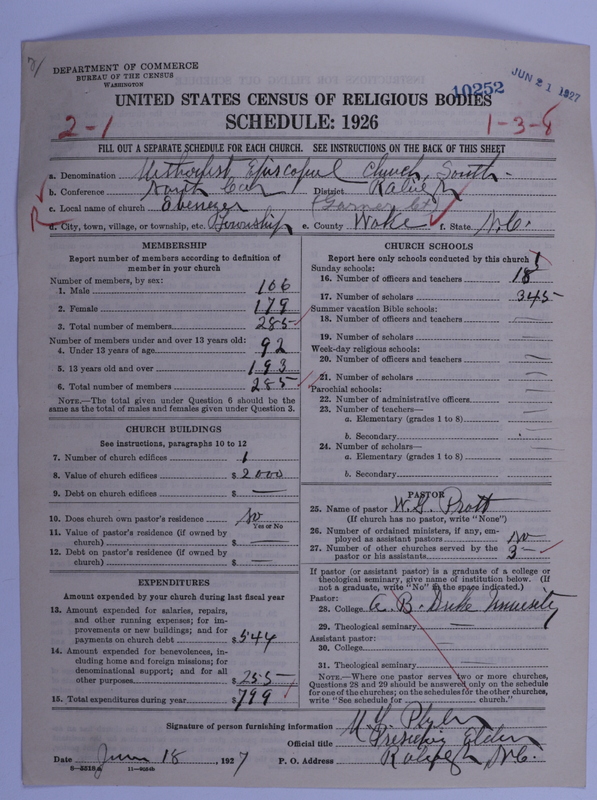 DEPARTMENT OF COMMERCE
BUREAU OF THE CENSUS
WASHINGTON
10252
JUN 21 1927
UNITED STATES CENSUS OF RELIGIOUS BODIES
SCHEDULE: 1926
2-1
1-3-8
FILL OUT A SEPARATE SCHEDULE FOR EACH CHURCH. SEE INSTRUCTIONS ON THE BACK OF THIS SHEET
a. Denomination Methodist Episcopal Church, South
b. Conference North Car District Raleigh
c. Local name of church Ebenezer (Garner Ct)
d. City, town, village, or township, etc. Township e. County Wake f. State N.C.
MEMBERSHIP
Report number of members according to definition of
member in your church
Number of members, by sex:
1. Male 106
2. Female 179
3. Total number of members 285
Number of members under and over 13 years old:
4. Under 13 years of age 92
5. 13 years old and over 193
6. Total number of members 285
NOTE.—The total given under Question 6 should be the
same as the total of males and females given under Question 3.
CHURCH BUILDINGS
See instructions, paragraphs 10 to 12
7. Number of church edifices 1
8. Value of church edifices $ 2000
9. Debt on church edifices $ —
10. Does church own pastor's residence no
Yes or No
11. Value of pastor's residence (if owned by
church) $ —
12. Debt on pastor's residence (if owned by
church) $ —
EXPENDITURES
Amount expended by your church during last fiscal year
13. Amount expended for salaries, repairs,
and other running expenses; for im-
provements or new buildings; and for
payments on church debt $ 544
14. Amount expended for benevolences, in-
cluding home and foreign missions; for
denominational support; and for all
other purposes $ 255
15. Total expenditures during year $ 799
CHURCH SCHOOLS
Report here only schools conducted by this church
Sunday schools:
16. Number of officers and teachers 18
17. Number of scholars 345
Summer vacation Bible schools:
18. Number of officers and teachers —
19. Number of scholars —
Week-day religious schools:
20. Number of officers and teachers —
21. Number of scholars —
Parochial schools:
22. Number of administrative officers —
23. Number of teachers—
a. Elementary (grades 1 to 8) —
b. Secondary
24. Number of scholars—
a. Elementary (grades 1 to 8) —
b. Secondary —
PASTOR
25. Name of pastor W. G. Pratt
(If church has no pastor, write "None")
26. Number of ordained ministers, if any, em-
ployed as assistant pastors no
27. Number of other churches served by the
pastor or his assistants 3
If pastor (or assistant pastor) is a graduate of a college or
theological seminary, give name of institution below. (If
not a graduate, write "No" in the space indicated.)
Pastor:
28. College A. B. Duke University
29. Theological seminary —
Assistant pastor:
30. College —
31. Theological seminary —
NOTE.—Where one pastor serves two or more churches,
Questions 28 and 29 should be answered only on the schedule
for one of the churches; on the schedules for the other churches,
write "See schedule for church."
Signature of person furnishing information M. T. Plyler
Official title Presiding Elder
Date June 18, 1927 P. O. Address Raleigh N.C.